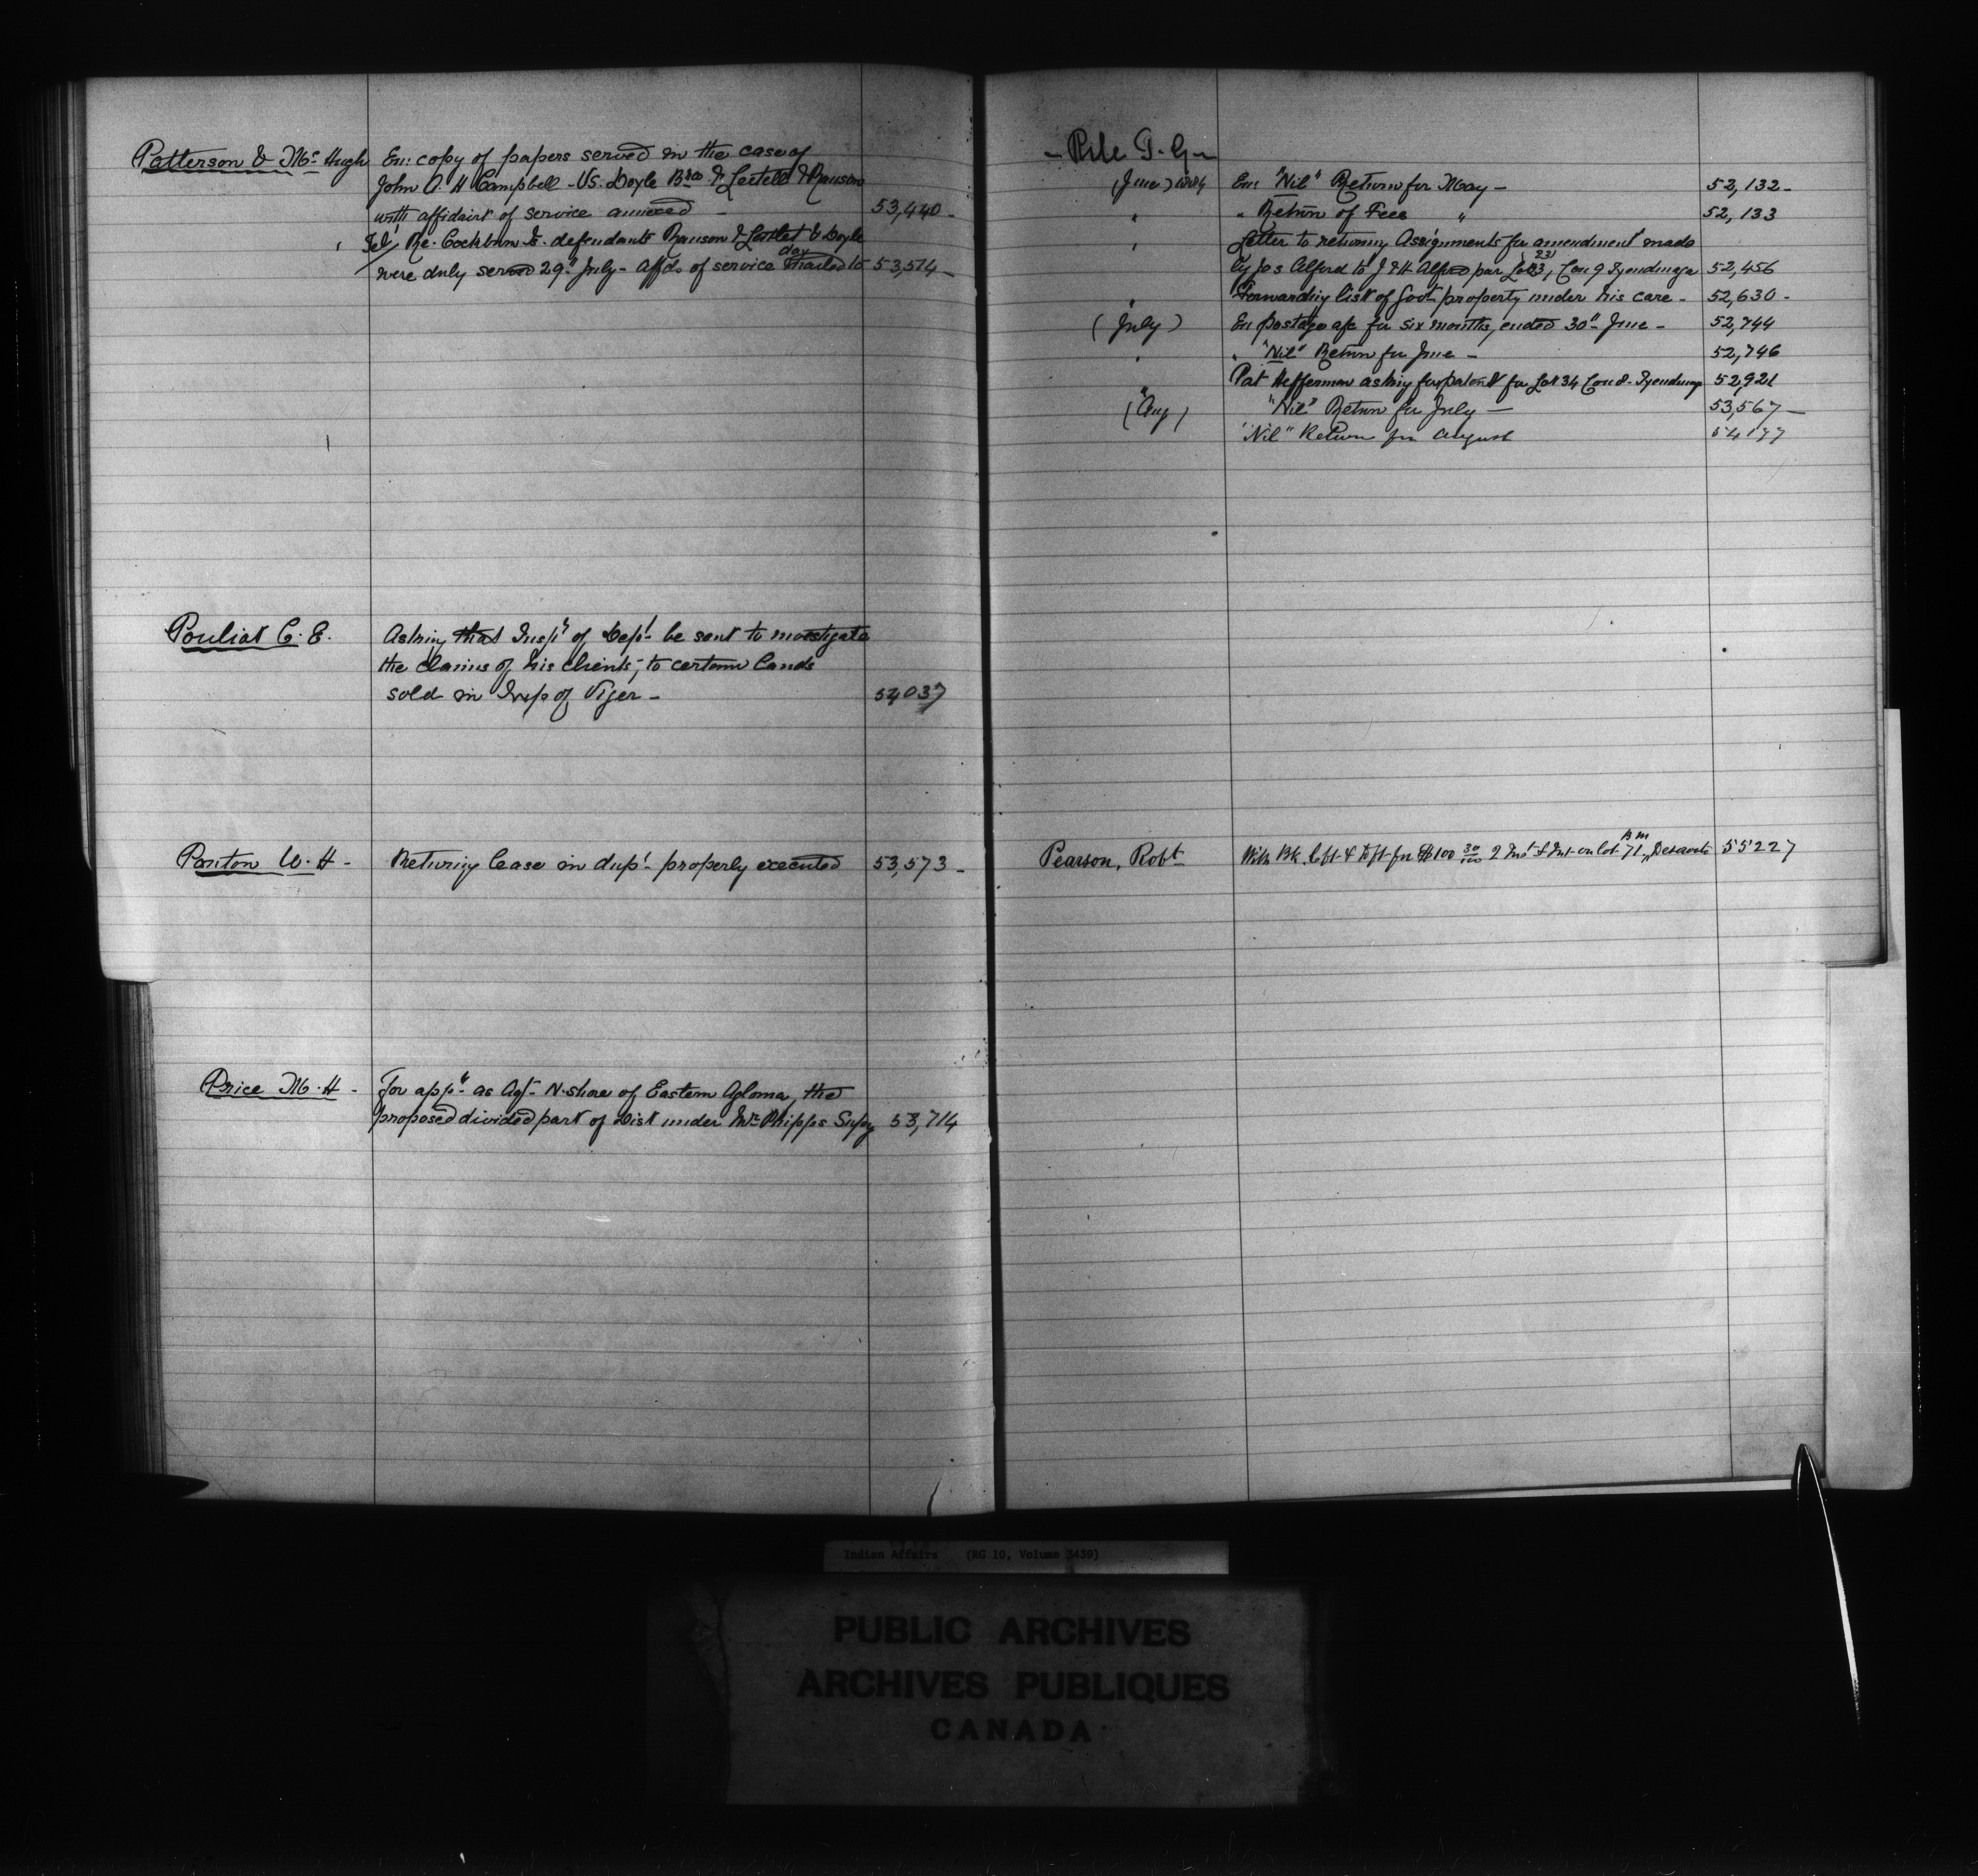 Patterson & McHugh En: copy of papers served in the case of
John A. H Campbell - Vs. Doyle Bros & Leitell & Ranson
with affidavit of service annexed - 53,440 -
" Tel, Re. Cockburn defendants Ranson & & Doyle
day
were duly served 29" July - Affds of service mailed to 53,514 -
Pouliot C. E. Asking that Insp'r of Dep't be sent to investigate
the claims of his clients, to certain lands
sold in Twp of Viger - 54037
Panton W. H - Returning lease in dup' properly executed 53,573 -
Price M. H - For app't as Agt N. shore of Eastern Algoma, the
proposed divided part of Dist under Mr Phipps Supcy 53,714
- Pile G -
(June) 1884 En: "Nil" Return for May - 52,132 -
" " Return of Fees " 52,133
" Letter to returning Assignments for amendment made
23
by Jos Alford to J & H Alford par Lot 3, Con 9 Tyendinaga 52,456
" Forwarding list of Govt property under his care - 52,630 -
(July) En postage a/c for six months, ended 30" June - 52,744
" " "Nil" Return for June - 52,746
" Pat Heffernan asking for patent for Lot 34 Con 8 - Tyendinaga 52,921
(Aug) "Nil" Return for July - 53,567 -
"Nil" Return for August 54177
Pearson, Robt With Bk. Cft & Dft for $100 30/100 2 Inst & Int on lot 71, 55227
Indian Affairs (RG 10, Volume 3439)
PUBLIC ARCHIVES
ARCHIVES PUBLIQUES
CANADA